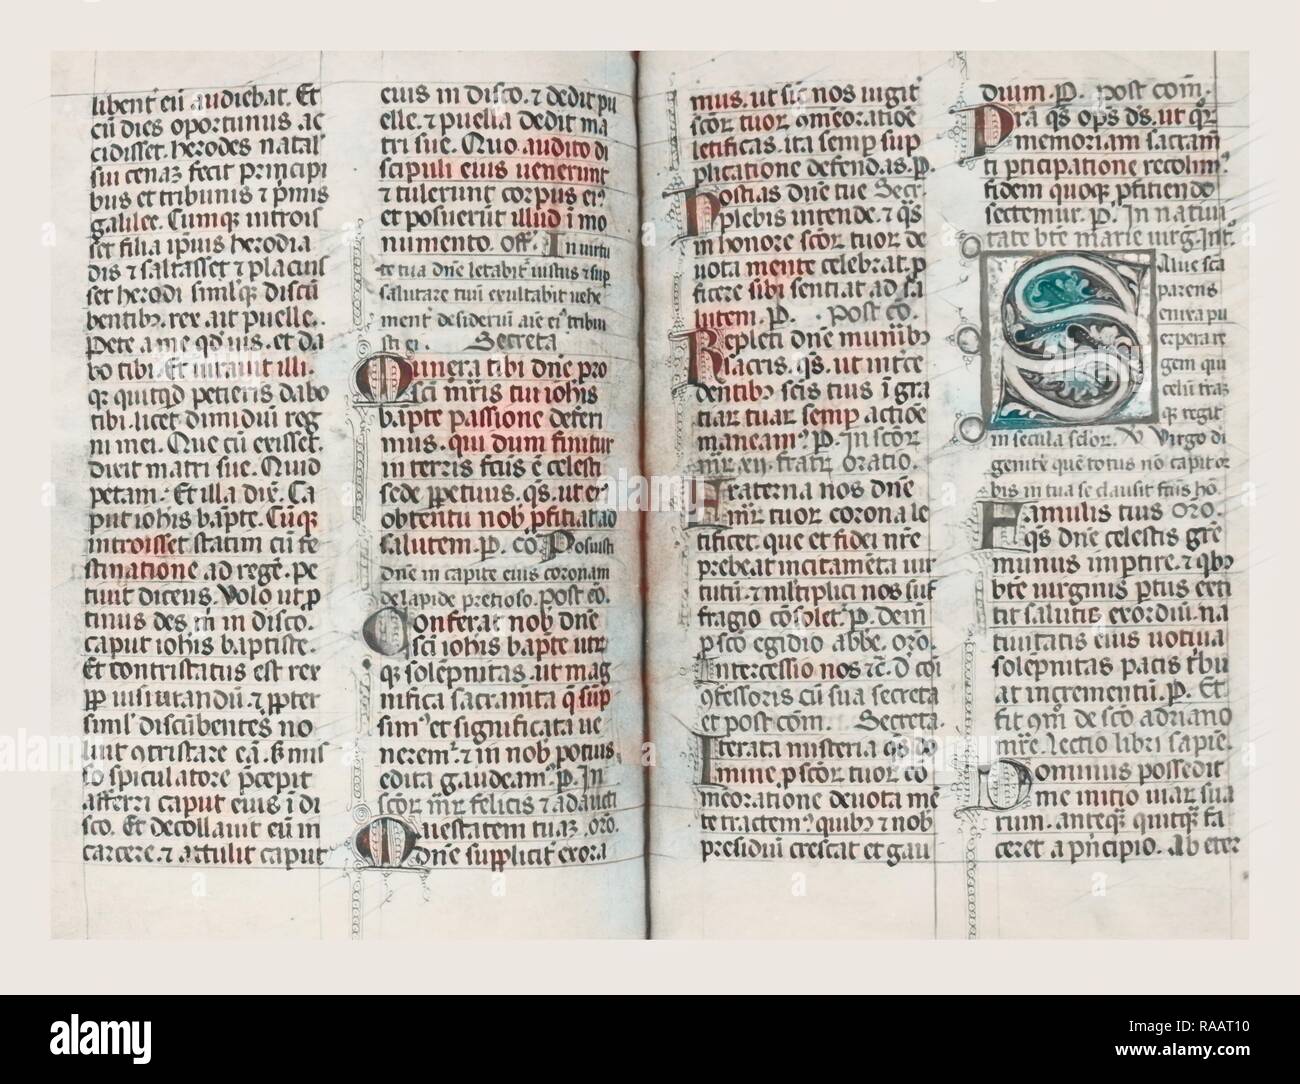 libent͛ eū audiebat. Et
cū dies oportunus ac
cidisset. herodes natal͛
sui cenaz fecit principi
bus et tribunis ⁊ p͛mis
galilee. Cumqꝫ introis
set filia ipius herodia
dis ⁊ saltasset ⁊ placuis
set herodi simlqꝫ discū
bentibꝫ. rex ait puelle.
Pete a me qd uis. et da
bo tibi. Et iurauit illi.
qꝛ quitqd petieris dabo
tibi. licet dimidiū reg
ni mei. Que cū exisset.
dixit matri sue. Quid
petam. Et illa dix͛. Ca
put iohis bapte. Cūqꝫ
introisset statim cū fe
stinatione ad regē. pe
tiuit dicens. Volo ut p
tinus des m̄ in disco.
caput iohis baptiste.
Et contristatus est rex
pp iusiurandū. ⁊ ppter
siml discūbentes no
luit ꝯtristare eā. s͛ mis
so spiculatore p͛cepit
afferri caput eius ī di
sco. Et decollauit eū in
carcere. ⁊ attulit caput
eius in disco. ⁊ dedit pu
elle. ⁊ puella dedit ma
tri sue. Quo audito di
scipuli eius uenerunt
⁊ tulerunt corpus ei⁹
et posuerūt illud ī mo
numento. off. In uirtu
te tua dn̄e letabit͛ iustus ⁊ sup
salutare tuū exultabit uehe
ment͛ desideriū aīe ei⁹ tribui
sti ei. Secreta
Munera tibi dn̄e pro
sci m̄ris tui iohis
bapte passione deferi
mus. qui dum finitur
in terris fctus ē celesti
sede ppetuus. qs. ut ei⁹
obtentu nob pficiat ad
salutem. P. cō Posuisti
dn̄e in capite eius coronam
de lapide pretioso. Post cō.
Conferat nob dn̄e
sci iohis bapte utr
qꝫ solēpnitas. ut mag
nifica sacram̄ta q sūp
sim⁹ et significata ue
nerem͛. ⁊ in nob potius
edita gaudeam⁹. P. In
scōꝝ m̄ꝝ felicis ⁊ adaucti
Maiestatem tuaz. oro.
dn̄e supplicit͛ exora
mus. ut sic̄ nos iugit͛
scōꝝ tuoꝝ ꝯmeoratiōe
letificas. ita semp sup
plicatione defendas. P.
Hostias dn̄e tue Secr.
plebis intende. ⁊ qs̄
in honore scōꝝ tuoꝝ de
uota mente celebrat. p
ficere sibi sentiat ad sa
lutem. P. Post cō.
Repleti dn̄e munibꝫ
sacris. qs. ut int͛ce
dentibꝫ scis tuis ī gra
tiaꝝ tuaꝝ semp actiōe
maneam⁹. P. In scōꝝ
m̄ꝝ xii. fratꝝ oratio.
Fraterna nos dn̄e
m̄ꝝ tuoꝝ corona le
tificet. que et fidei nr̄e
prebeat incitam̄ta uir
tutū. ⁊ multiplici nos suf
fragio cōsolet͛. P. deīn
p scō egidio abbe. oro.
Intercessio nos ⁊c̄. d coī
ꝯfessoris cū sua secreta
et post com̄. Secreta.
Iterata misteria qs do
mine. p scōꝝ tuoꝝ cō
meoratione deuota mē
te tractem⁹. quibꝫ ⁊ nob
presidiū crescat et gau
dium. P. Post com̄.
Pra qs ops ds̄. ut qꝝ
memoriam sacram̄
ti pticipatione recolim⁹.
fidem quoqꝫ pficiendo
sectemur. P. In natiui
tate bte marie uirg. Int͛.
Salue sca
parens
enixa pu
erpera re
gem qui
celū traz
qꝫ regit
in secula sclōꝝ. V Virgo di
genitx quē totus nō capit or
bis in tua se clausit fctus hō.
Famulis tuis Oro.
qs dn̄e celestis grē
munus imptire. ⁊ qbꝫ
bte uirginis ptus exti
tit salutis exordiū. na
tiuitatis eius uotiua
solēpnitas pacis t͛bu
at incrementū. P. Et
fit ꝯm̄ de scō adriano
m̄re. Lectio libri sapiē.
Dominus possedit
me initio uiaꝝ sua
rum. anteqꝫ quitqꝫ fa
ceret a pn̄cipio. Ab eter
alamy
Image ID: RAAT10
www.alamy.com